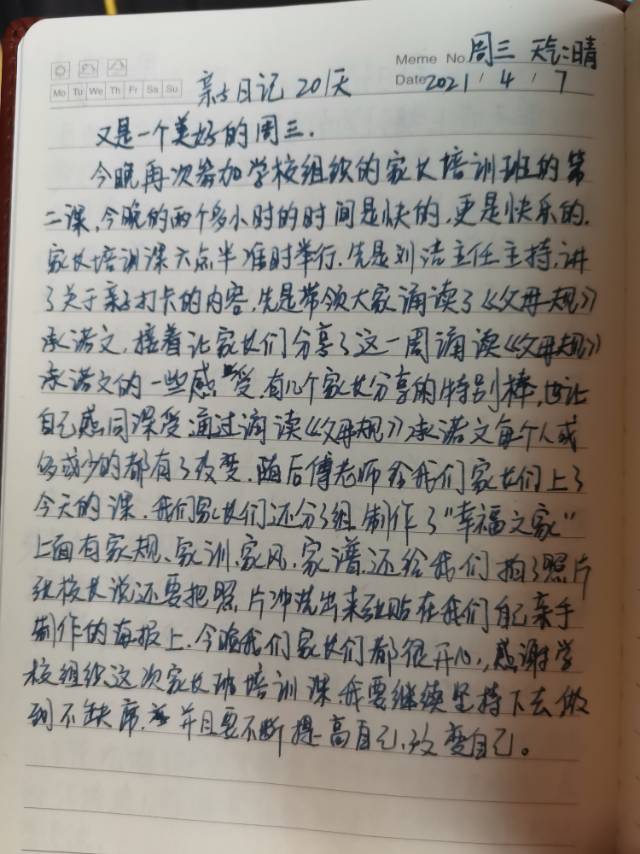 Meme No. 周三 天气:晴
Mo Tu We Th Fr Sa Su
Date 2021 / 4 / 7
亲子日记 201天
又是一个美好的周三.
今晚再次参加学校组织的家长培训班的第
二课,今晚的两个多小时的时间是快的,更是快乐的.
家长培训课六点半准时举行.先是刘洁主任主持,讲
了关于亲子打卡的内容,先是带领大家诵读了《父母规》
承诺文,接着让家长们分享了这一周诵读《父母规》
承诺文的一些感受,有几个家长分享的特别棒,也让
自己感同深受通过诵读《父母规》承诺文每个人或
多或少的都有了改变.随后傅老师给我们家长们上了
今天的课.我们家长们还分了组制作了"幸福之家"
上面有家规、家训、家风、家谱.还给我们拍了照片
张校长说还要把照片冲洗出来张贴在我们自己亲手
制作的海报上.今晚我们家长们都很开心,感谢学
校组织这次家长班培训课.我要继续坚持下去做
到不缺席.并且要不断提高自己,改变自己。